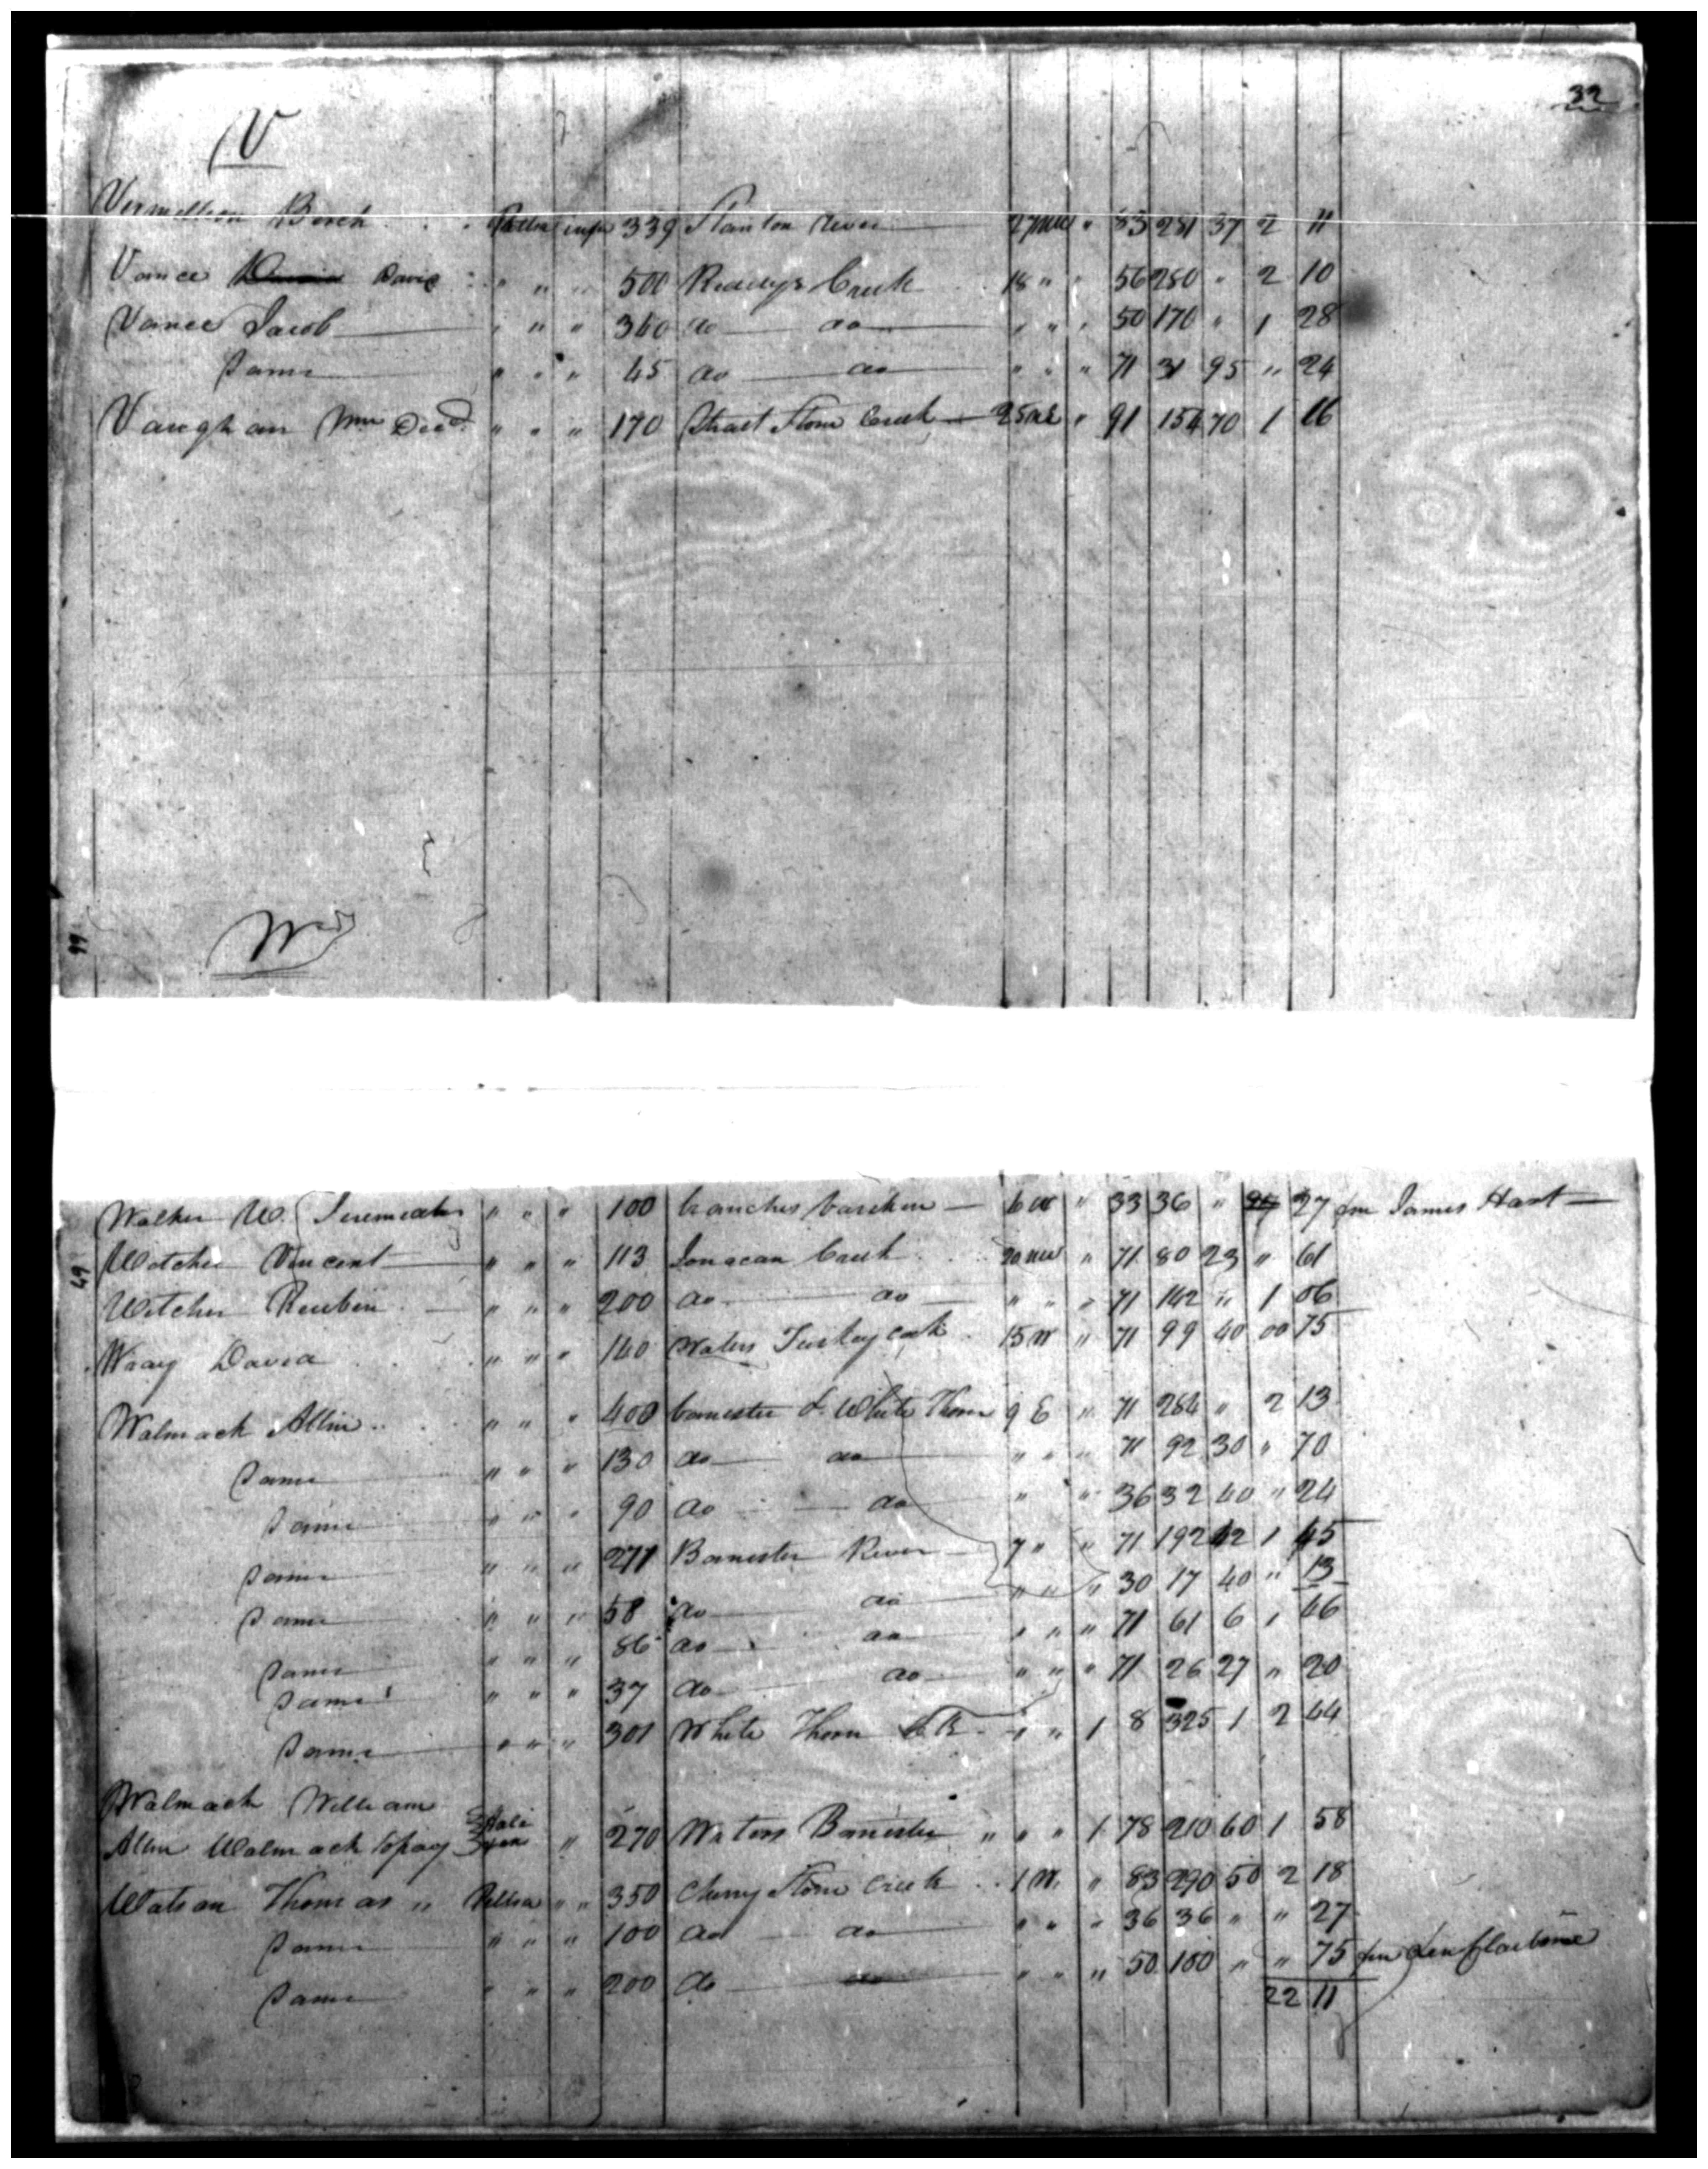 32
V
Vermillion Birch . . . Pattsa in fee 339 Stanton River 27 NW " 83 281 37 2 11
Vance David " " " 500 Reedys Creek 18 " " 56 280 " 2 10
Vance Jacob " " " 340 do do " " " 50 170 " 1 28
Same " " " 45 do do " " " 71 31 95 " 24
Vaughan Wm Decd " " " 170 Strait Stone Creek 25 NE " 91 154 70 1 16
W
49
Walker W. Jeremiah " " " 100 branches 6 W " 33 36 " 27 fm James Hart
49
Witcher Vincent " " " 113 Creek 20 NW " 71 80 23 " 61
Witcher Reuben " " " 200 do do " " " 71 142 " 1 06
Wray David " " " 140 Waters Turkeycock 15 W " 71 99 40 00 75
Walmack Allin " " " 400 banester & White Thorn 9 E " 71 284 " 2 13
Same " " " 130 do do " " " 71 92 30 " 70
Same " " " 90 do do " " 36 32 40 " 24
Same " " " 271 Banester River 7 " " 71 192 42 1 45
Same " " " 58 do do " " " 30 17 40 " 13
Same " " " 86 do do " " " 71 61 6 " 46
Same " " " 37 do do " " " 71 26 27 " 20
Same " " " 301 White Thorn Ck " " 1 8 325 1 2 44
Walmack William
Allin Walmack to pay " 270 Waters Banester " " " 1 78 210 60 1 58
Watson Thomas " Pattsa " " 350 Cherry Stone Creek 1 N " 83 290 50 2 18
Same " " " 100 do do " " " 36 36 " " 27
Same " " " 200 do " " " 50 100 " " 75 fm
22 11